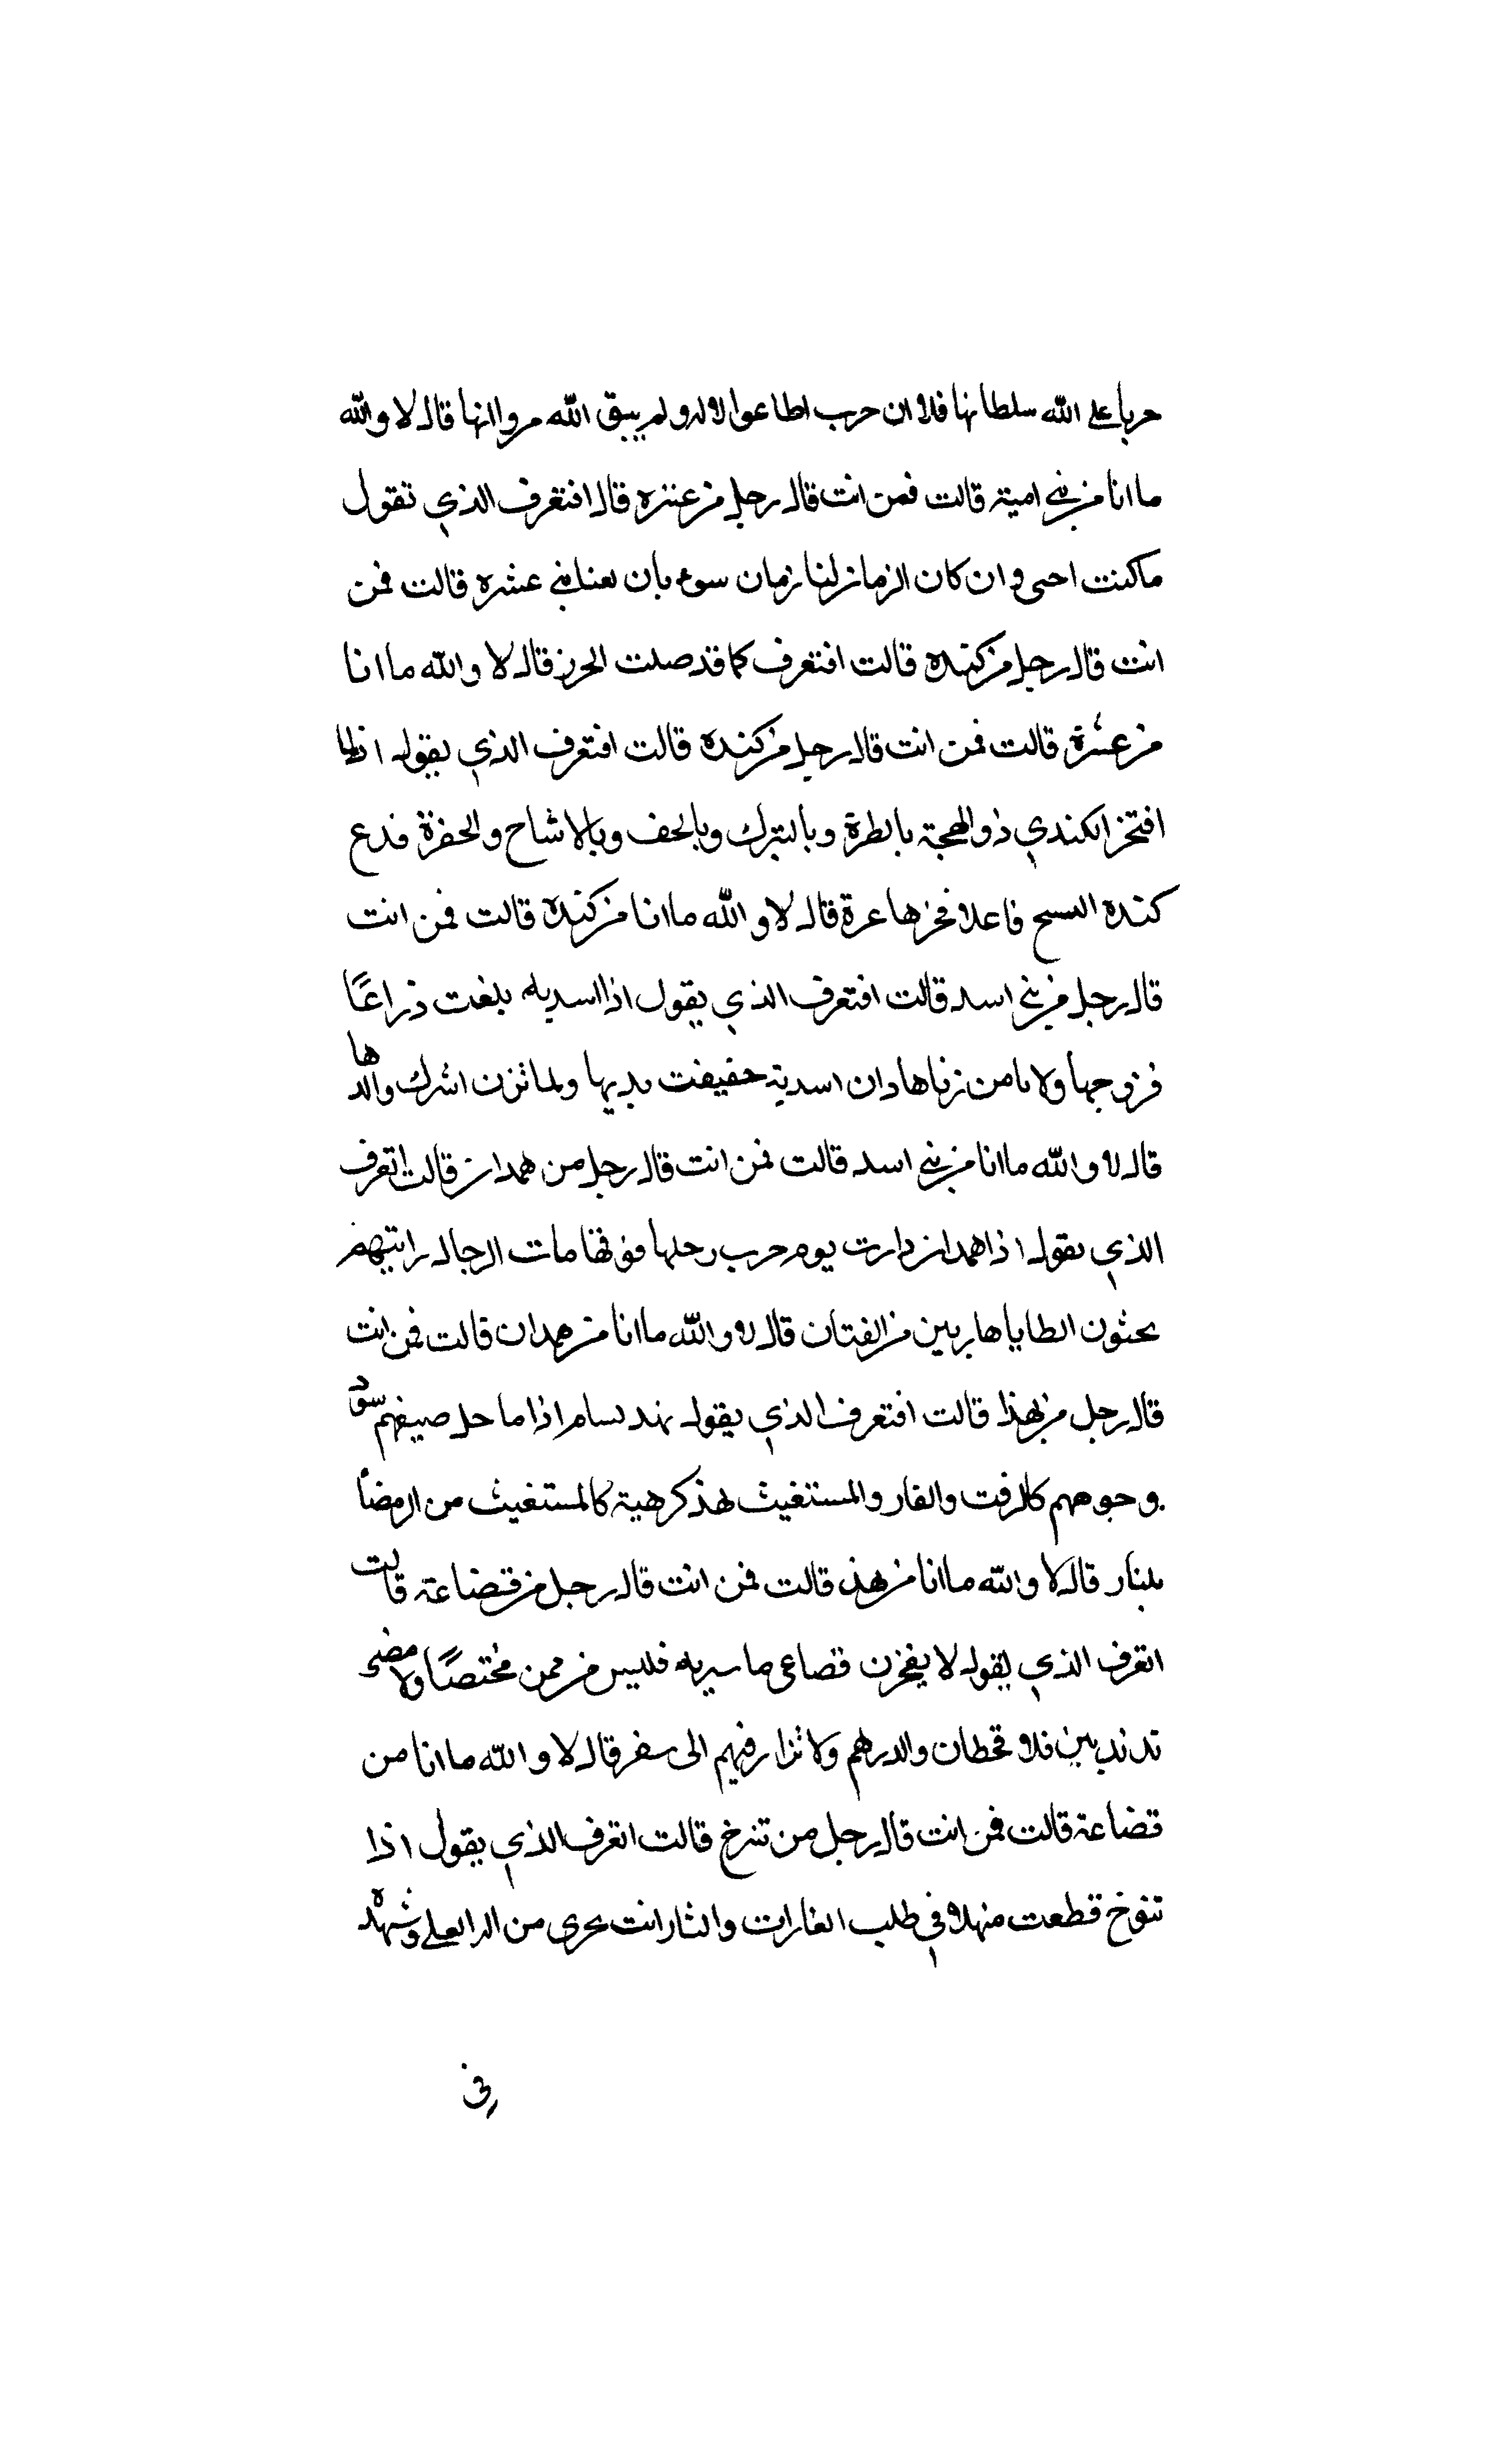 حربا على الله سلطانها فلا ان حرب اطاعوا لاله ولم يبق الله مرواانها قال لا والله
ما انا من بني امية قالت فمن انت قال رجل من عنزه قال افتعرف الذي تقول
ما كنت احسى وان كان الزمان لنا زمان سوء بان لعنا بني عشره قالت فمن
انت قال رجل من كنده قالت افتعرف كما قد صلت الحرز قال لا والله ما انا
من عشرة قالت فمن انت قال رجل من كنده قالت افتعرف الذي يقول اذا ما
افتخر الكندي ذو البهجة بالطرة وبالبترك وبالحف وبالاشاح والحفرة فدع
كنده النسج فاعلا فخرها عرة قال لا والله ما انا من كنده قالت فمن انت
قال رجل من بني اسد قالت افتعرف الذي يقول اذا اسديه بلغت ذراعًا
فزوجها ولا تامن زناها وان اسدية حفيفت يديها ولما تزن اشرك والدها
قال لا والله ما انا من بني اسد قالت فمن انت قال رجل من همدان قالت اتعرف
الذي يقول اذا همدان دارت يوم حرب رحلها فوق هامات الرجال رايتهم
يحثون المطايا هاربين من الفتان قال لا والله ما انا من همدان قالت فمن انت
قال رجل من نهذا قالت افتعرف الذي يقول نهد لسام اذا ما حل ضيفهم سود
وجوههم كالزفت والقار والمستغيث لهذ كرهية كالمستغيث من الرمضا
بلنار قال لا والله ما انا من نهذ قالت فمن انت قال رجل من قضاعة قالت
اتعرف الذي يقول لا يفخرن قضاعى ما سريه فليس من ممن مختصًا ولا مضى
تدندبين فلا قحطان والدرهم ولا نزار فيهم الى سفر قال لا والله ما انا من
قضاعة قالت فمن انت قال رجل من تنرخ قالت اتعرف الذي يقول اذا
تنوخ قطعت منهلا في طلب الغارات والثار انت بحرى من الدالعلى وشهده
في